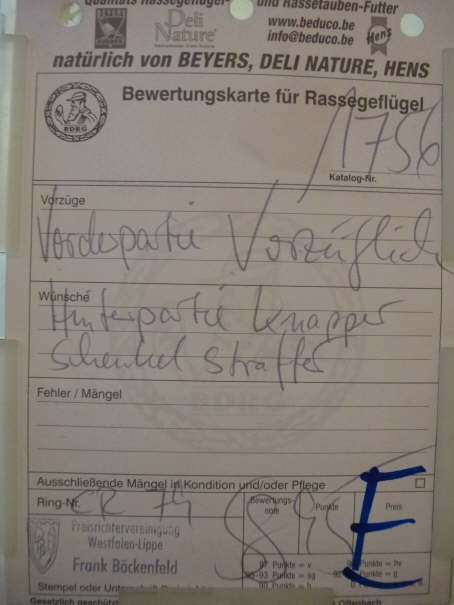 Qualitäts Rassegeflügel- und Rassetauben-Futter
BEYERS
Deli Nature
www.beduco.be
info@beduco.be
Hens
natürlich von BEYERS, DELI NATURE, HENS
BDRG
Bewertungskarte für Rassegeflügel
1756
Katalog-Nr.
Vorzüge
Vorderpartie Vorzüglich
Wünsche
Hinterpartie knapper
Schenkel straffer
Fehler / Mängel
Ausschließende Mängel in Kondition und/oder Pflege
Ring-Nr.
Bewertungs-
note
Punkte
Preis
E
Preisrichtervereinigung
Westfalen-Lippe
Frank Böckenfeld
97 Punkte = v
Punkte = hv
Punkte = sg
Punkte = g
Stempel oder
Gesetzlich geschützt
Offenbach